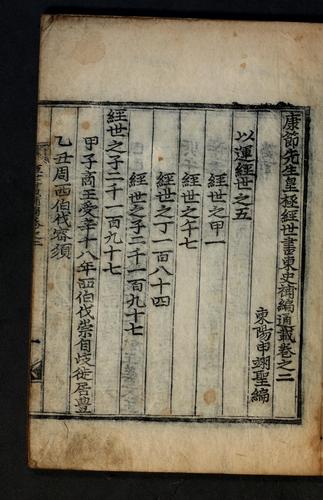 康節先生皇極經世書東史補編通載卷之二
東陽申翊聖編
以運經世之五
經世之甲一
經世之午七
經世之丁一百八十四
經世之子二千一百九十七
經世之子二千一百九十七
甲子商王受辛十八年西伯伐崇自歧徙居豊
乙丑周西伯伐密須